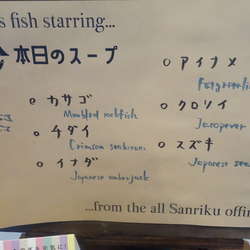 s fish starring...
本日のスープ
カサゴ
Marbled rockfish
チダイ
Crimson seabream
イナダ
Japanese amberjack
アイナメ
クロソイ
Jacopever
スズキ
Japanese sea
...from the all Sanriku offin